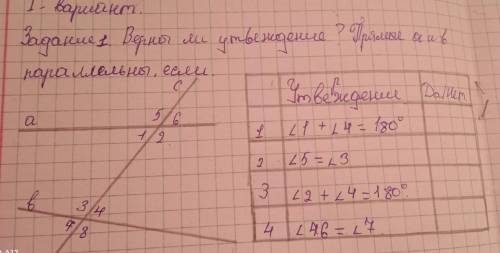 I - вариант.
Задание 1. Верны ли утвеждение? Прямые а и в
параллельны, если.
c
a
5 6
1 2
в
3 4
7 8
Утвеждении Да/нет
1 ∠1 + ∠4 = 180°
2 ∠5 = ∠3
3 ∠2 + ∠4 = 180°.
4 ∠46 = ∠7.